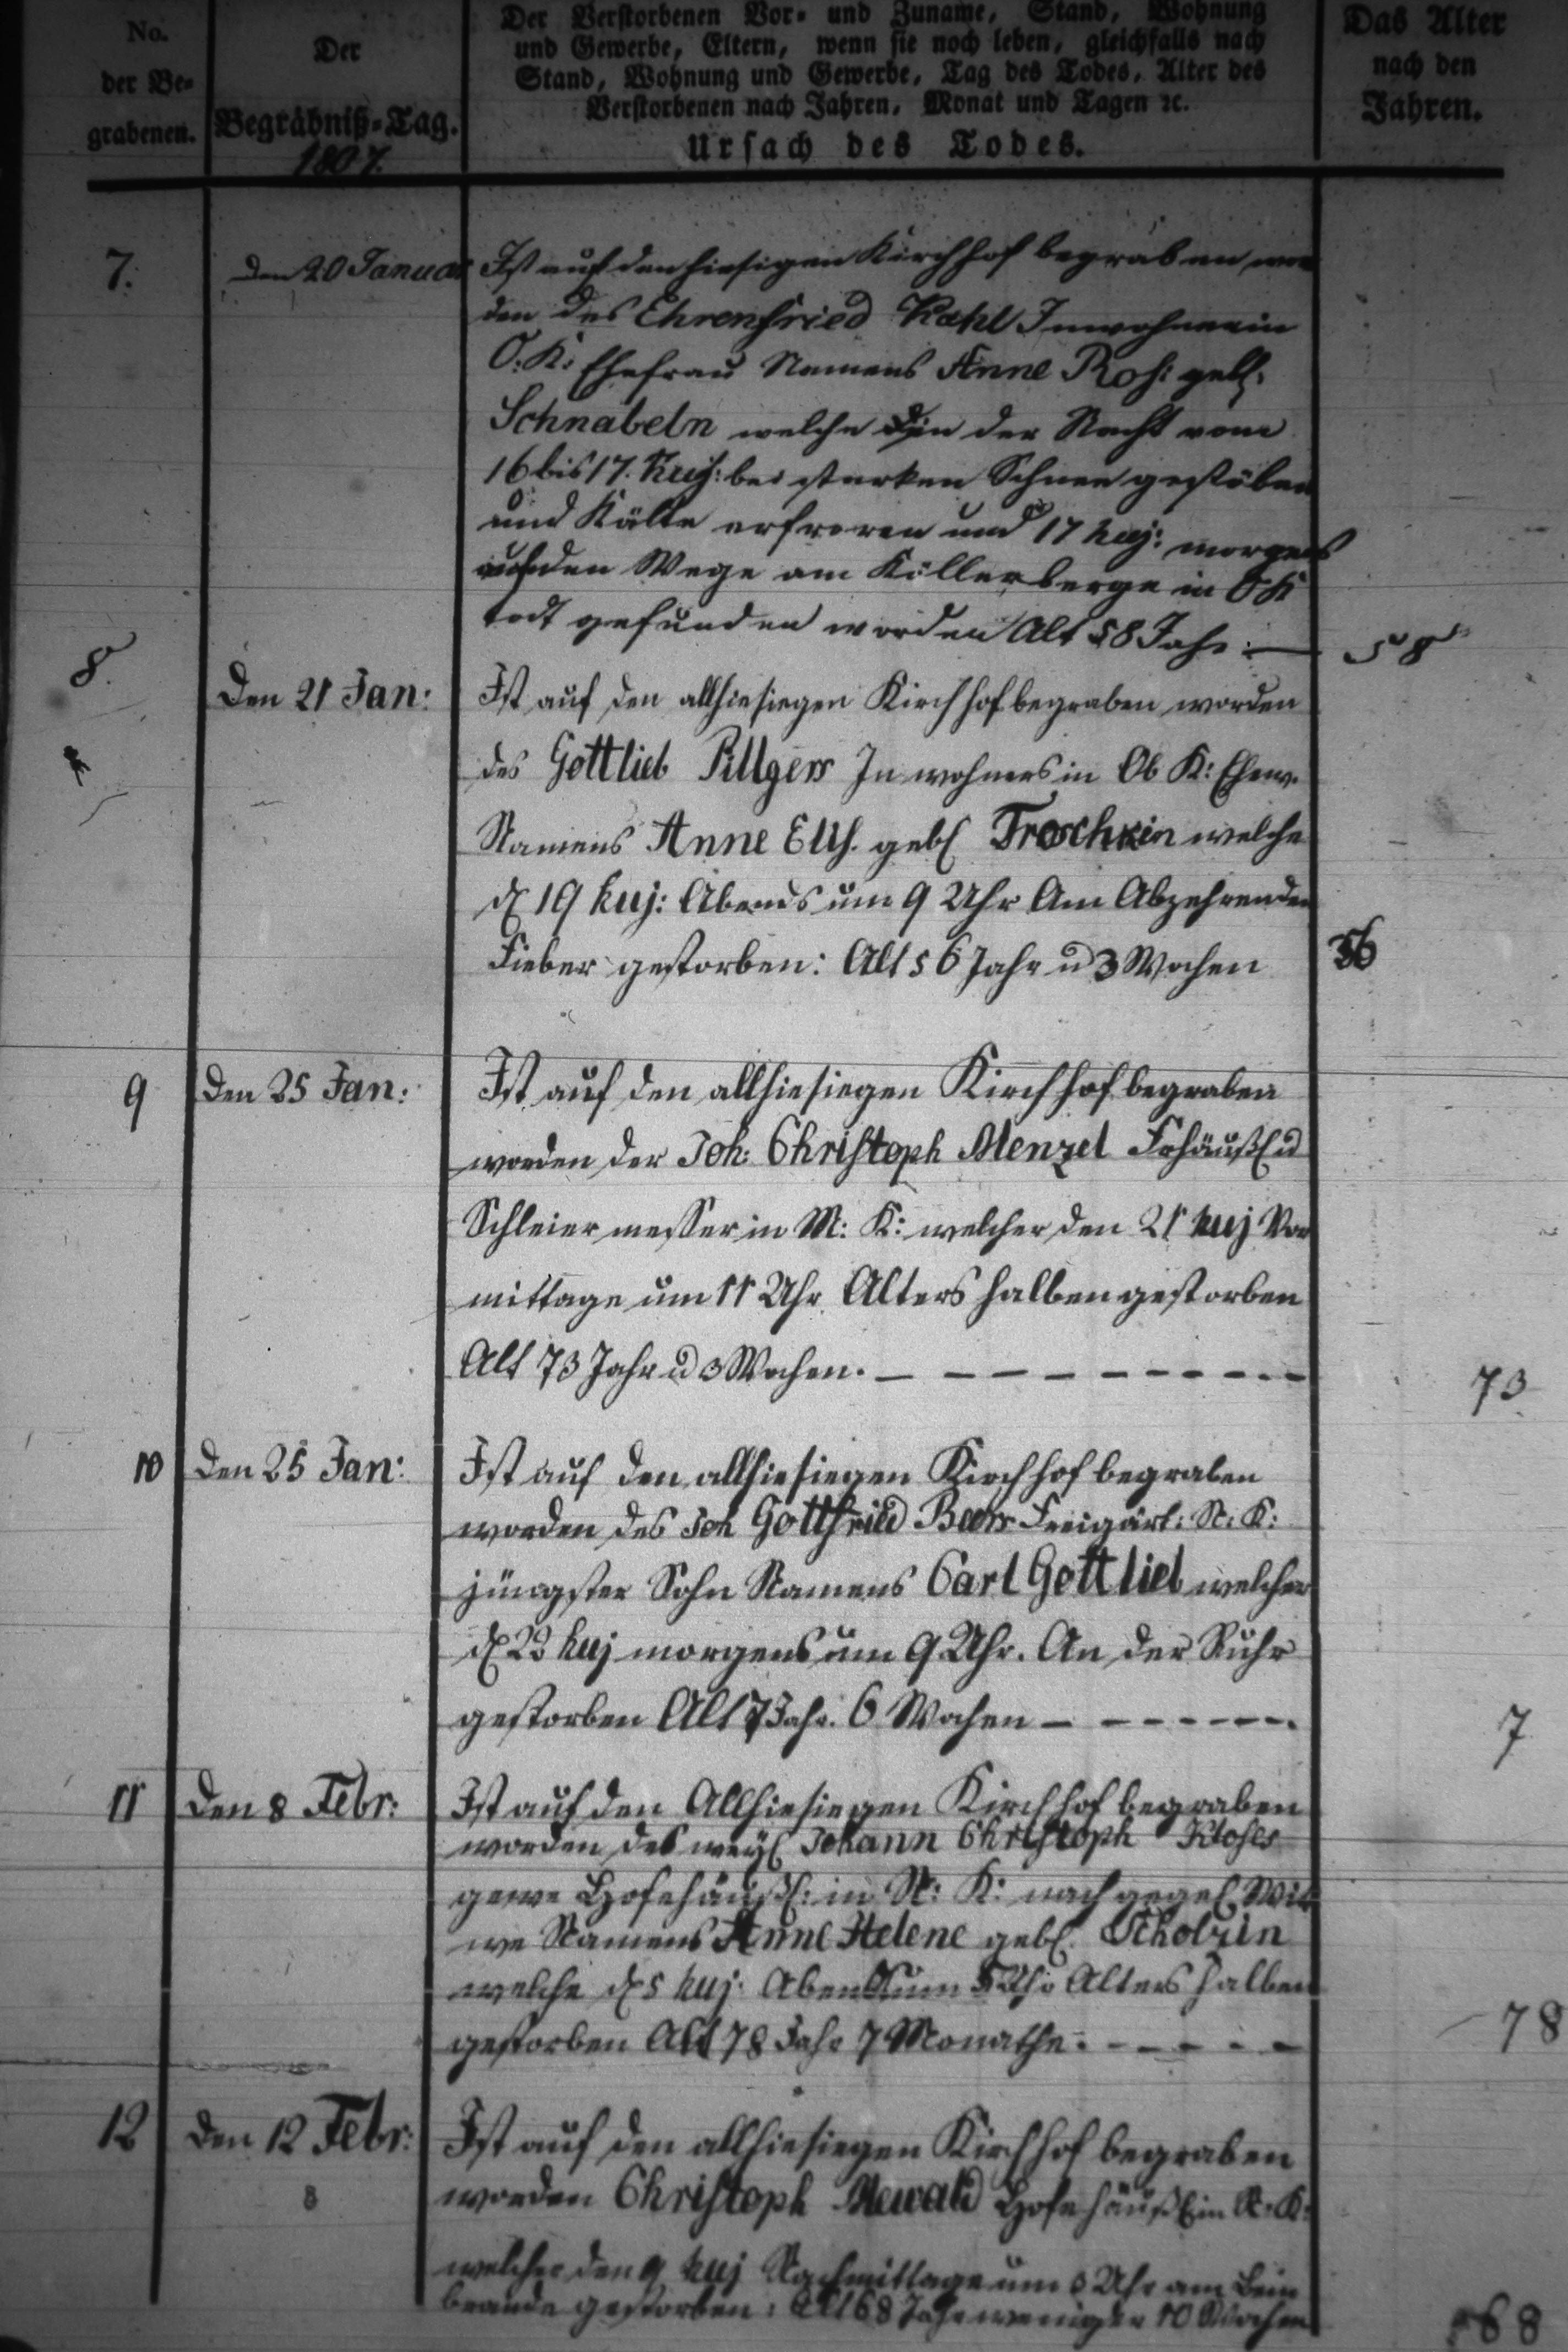 No.
der Be-
grabenen.
Der
Begräbniß-Tag.
1807.
Der Verstorbenen Vor- und Zuname, Stand, Wohnung
und Gewerbe, Eltern, wenn sie noch leben, gleichfalls nach
Stand, Wohnung und Gewerbe, Tag des Todes, Alter des
Verstorbenen nach Jahren, Monat und Tagen ꝛc.
Ursach des Todes.
Das Alter
nach den
Jahren.
7.
den 20 Januar
Ist auf den hiesigen Kirchhof begraben wor
den des Ehrenfried Kahl Inwohner in
O: K: Ehefrau Namens Anne Ros: geb:
Schnabeln welche in der Nacht vom
16 bis 17. huj: bei starken Schnee gestöber
und Kälte erfroren und 17 huj: morgens
auf den Wege am Köllerberge in O K
todt gefunden worden Alt 58 Jahr:
58
8.
Den 21 Jan:
Ist auf den allhiesiegen Kirchhof begraben worden
des Gottlieb Pillgers Inwohners in Ob K: Ehew.
Namens Anne Elis. geb: welche
d 19 huj: Abends um 9 Uhr Am Abzehrenden
Fieber gestorben: Alt 56 Jahr u 3 Wochen
56
9
Den 25 Jan:
Ist auf den allhiesiegen Kirchhof begraben
worden der Joh: Christoph Menzel Frhäußl u
Schleier messer in M: K: welcher den 21 huj Vor
mittage um 11 Uhr Alters halben gestorben
Alt 73 Jahr u 3 Wochen.
73
10
Den 25 Jan:
Ist auf den allhiesiegen Kirchhof begraben
worden des Joh Gottfried Beers Freigärt: N: K:
jüngster Sohn Namens Carl Gottlieb welcher
d 23 huj morgens um 9 Uhr. An der Ruhr
gestorben Alt 7 Jahr. 6 Wochen
7
11
Den 8 Febr:
Ist auf den Allhiesiegen Kirchhof begraben
worden des weyl Johann Christoph
gewe Hofehäußl: in N: K: nach gegel Wit
we Namens Anne Helene geb: Scholzin
welche d 5 huj: Abends um 5 Uhr Alters halben
gestorben Alt 78 Jahr 7 Monathe.
78
12
Den 12 Febr:
8
Ist auf den allhiesiegen Kirchhof begraben
worden Christoph Mewald Hofehäußl in N: K:
welcher den 9 huj Nachmittage um Uhr am Bein
brande gestorben: Alt 68 Jahr weniger 10 Wochen
68